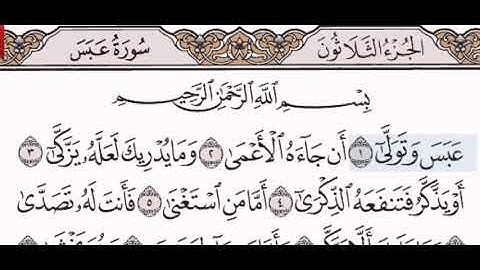 سُورَةُ عَبَسَ الجُزْءُ الثَّلَاثُونَ
بِسْمِ اللَّهِ الرَّحْمَٰنِ الرَّحِيمِ
عَبَسَ وَتَوَلَّىٰٓ ١ أَن جَآءَهُ الْأَعْمَىٰ ٢ وَمَا يُدْرِيكَ لَعَلَّهُۥ يَزَّكَّىٰٓ ٣
أَوْ يَذَّكَّرُ فَتَنفَعَهُ الذِّكْرَىٰٓ ٤ أَمَّا مَنِ اسْتَغْنَىٰ ٥ فَأَنتَ لَهُۥ تَصَدَّىٰ